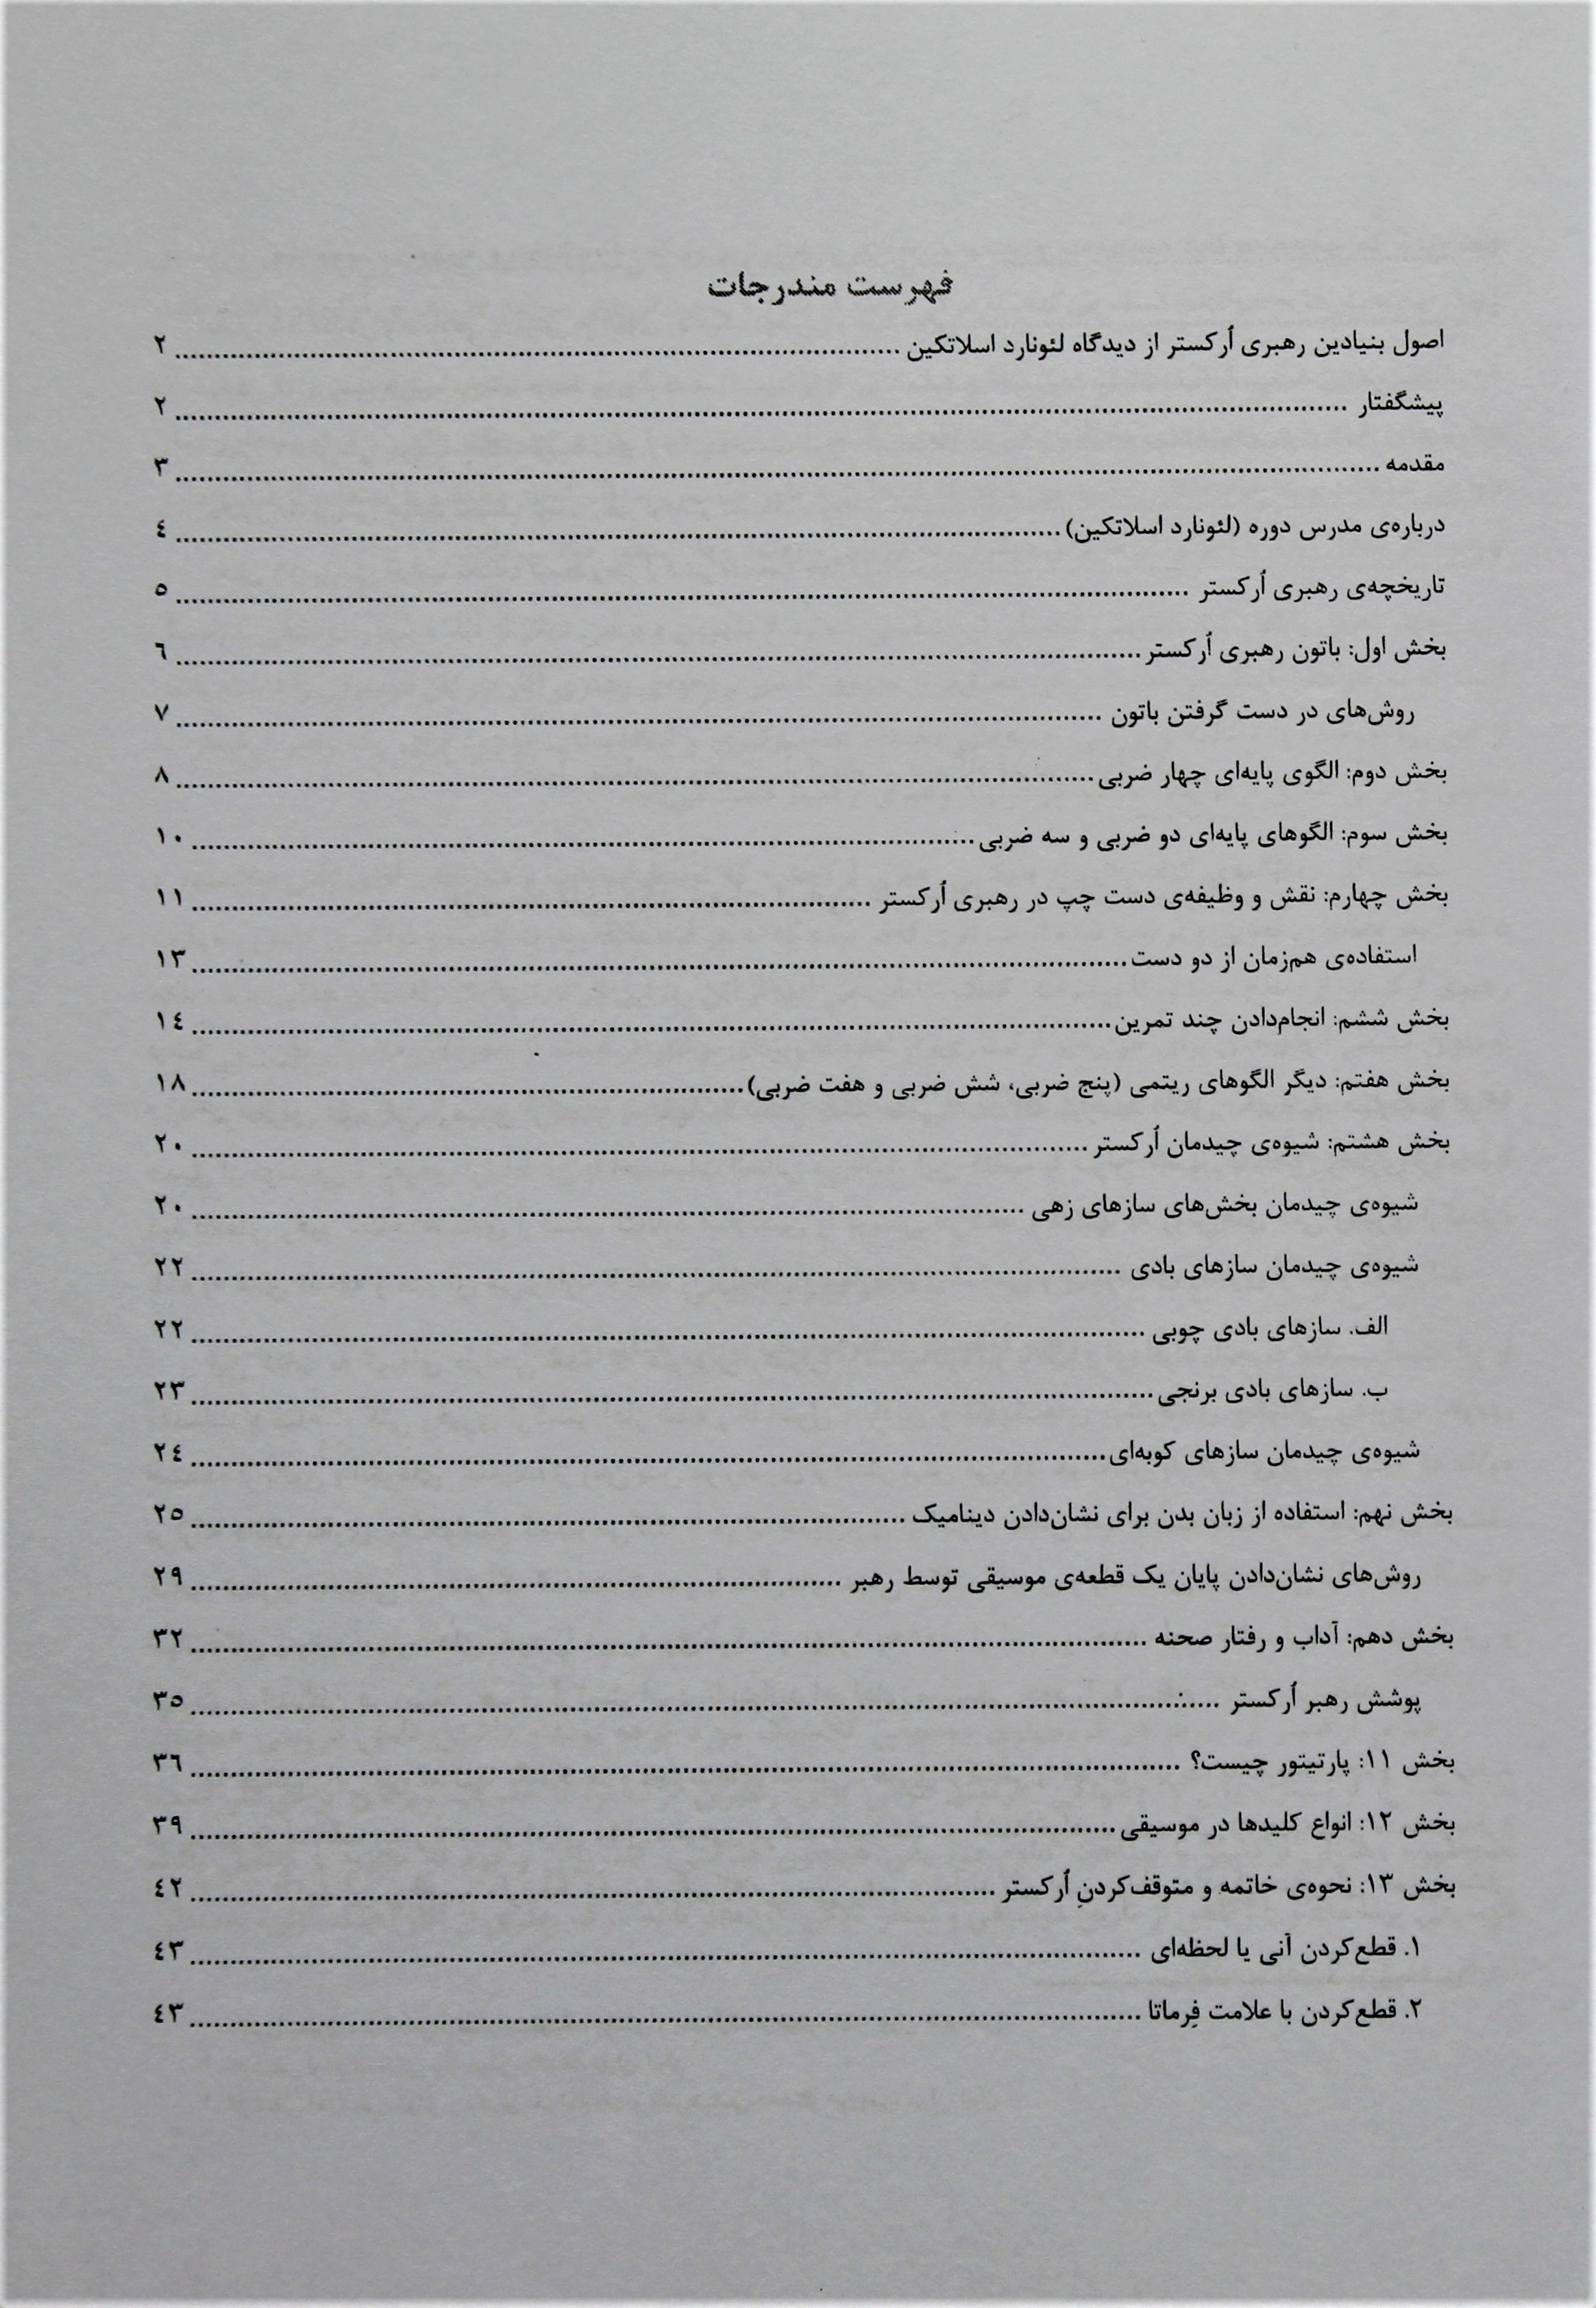 فهرست مندرجات
اصول بنیادین رهبری اُرکستر از دیدگاه لئونارد اسلاتکین ........ ٢
پیشگفتار ........ ٢
مقدمه ........ ٣
درباره‌ی مدرس دوره (لئونارد اسلاتکین) ........ ٤
تاریخچه‌ی رهبری اُرکستر ........ ٥
بخش اول: باتون رهبری اُرکستر ........ ٦
روش‌های در دست گرفتن باتون ........ ٧
بخش دوم: الگوی پایه‌ای چهار ضربی ........ ٨
بخش سوم: الگوهای پایه‌ای دو ضربی و سه ضربی ........ ١٠
بخش چهارم: نقش و وظیفه‌ی دست چپ در رهبری اُرکستر ........ ١١
استفاده‌ی هم‌زمان از دو دست ........ ١٣
بخش ششم: انجام‌دادن چند تمرین ........ ١٤
بخش هفتم: دیگر الگوهای ریتمی (پنج ضربی، شش ضربی و هفت ضربی) ........ ١٨
بخش هشتم: شیوه‌ی چیدمان اُرکستر ........ ٢٠
شیوه‌ی چیدمان بخش‌های سازهای زهی ........ ٢٠
شیوه‌ی چیدمان سازهای بادی ........ ٢٢
الف. سازهای بادی چوبی ........ ٢٢
ب. سازهای بادی برنجی ........ ٢٣
شیوه‌ی چیدمان سازهای کوبه‌ای ........ ٢٤
بخش نهم: استفاده از زبان بدن برای نشان‌دادن دینامیک ........ ٢٥
روش‌های نشان‌دادن پایان یک قطعه‌ی موسیقی توسط رهبر ........ ٢٩
بخش دهم: آداب و رفتار صحنه ........ ٣٢
پوشش رهبر اُرکستر ........ ٣٥
بخش ١١: پارتیتور چیست؟ ........ ٣٦
بخش ١٢: انواع کلیدها در موسیقی ........ ٣٩
بخش ١٣: نحوه‌ی خاتمه و متوقف‌کردنِ اُرکستر ........ ٤٢
١. قطع‌کردن آنی یا لحظه‌ای ........ ٤٣
٢. قطع‌کردن با علامت فِرماتا ........ ٤٣